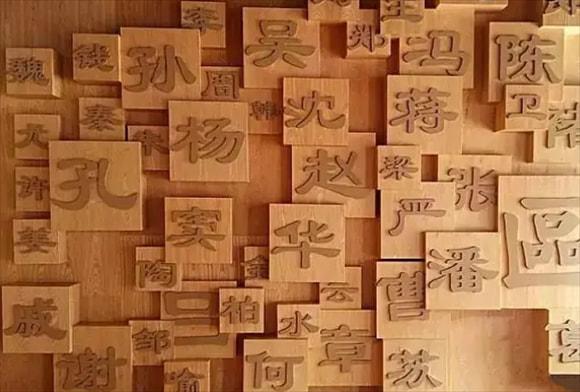 李
吴
郑
冯
陈
魏
钱
孙
周
韩
沈
蒋
卫
尤
秦
朱
杨
赵
梁
张
孔
许
严
姜
窦
华
潘
區
陶
金
云
曹
戚
吕
柏
水
邹
章
谢
喻
何
苏